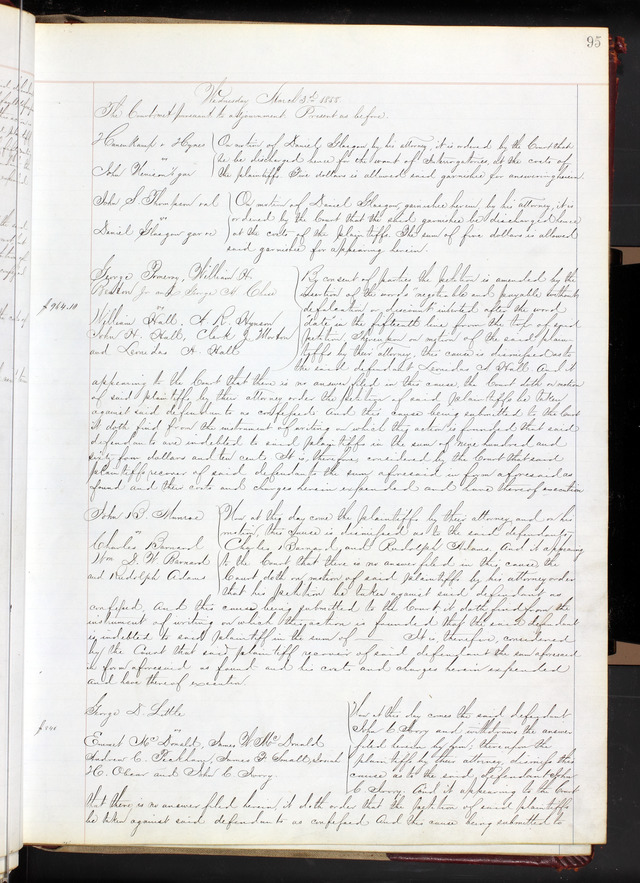 95
Wednesday March 3rd 1858
The Court met pursuant to adjournment Present as before
On motion of Daniel Glasgow by his attorney, it is ordered by the Court that
he be discharged hence for the want of Interrogatories, at the costs of
the plaintiffs Five dollars is allowed said garnishee for answering herein
John S Thompson et al
vs
Daniel Glasgow gar
On motion of Daniel Glasgow garnishee herein by his attorney, it is
ordered by the Court that the said garnishee be discharged hence
at the costs of the plaintiffs. The sum of five dollars is allowed
said garnishee for appearing herein.
George Pomeroy, William H.
Benton Jr and George H. Cline
vs
William Hall, A. R. Hynson
John H. Hall, Clark J. Morton
and Leonidas A. Hall
$964.10
By consent of parties the petition is amended by the
insertion of the words "negotiable and payable without
defalcation or discount" inserted after the word
"date" in the fifteenth line from the top of said
petition. Thereupon on motion of the said plain-
tiffs by their attorney, this cause is dismissed as to
the said defendant Leonidas A Hall And it
appearing to the Court that there is no answer filed in this cause, the Court doth on motion
of said plaintiffs by their attorney order the petition of said plaintiffs be taken
against said defendants as confessed And this cause being submitted to the Court
it doth find from the instrument of writing on which the action is founded that said
defendants are indebted to said plaintiffs in the sum of nine hundred and
sixty four dollars and ten cents, It is therefore considered by the Court that said
plaintiffs recover of said defendants the sum aforesaid in form aforesaid as
found and their costs and charges herein expended and have thereof execution
John B. Munroe
vs
Charles Barnard
Wm D. W Barnard
and Rudolph Adams
Now at this day come the plaintiffs by their attorney, and on his
motion, this cause is dismissed as to the said defendants,
Charles Barnard and Rudolph Adams. And it appearing
to the Court that there is no answer filed in this cause the
Court doth on motion of said plaintiffs by his attorney order
that his petition be taken against said defendant as
confessed. And this cause being submitted to the Court it doth find from the
instrument of writing on which the action is founded that the said defendant
is indebted to said plaintiff in the sum of It is therefore considered
by the Court that said plaintiff recover of said defendant the sum aforesaid
in form aforesaid as found and his costs and charges herein expended
and have thereof execution
George D. Little
vs
Emmet McDonald, James W McDonald
Andrew C. Peckham, James F Small, Isaiah
H. Olcour and John C. Ivory.
Now at this day comes the said defendant
John C Ivory and withdraws the answer
filed herein by him, thereupon the
plaintiff by their attorney dismiss this
cause as to the said defendant John
C Ivory, And it appearing to the Court
that there is no answer filed herein, it doth order that the petition of said plaintiffs
be taken against said defendants as confessed And this cause being submitted to